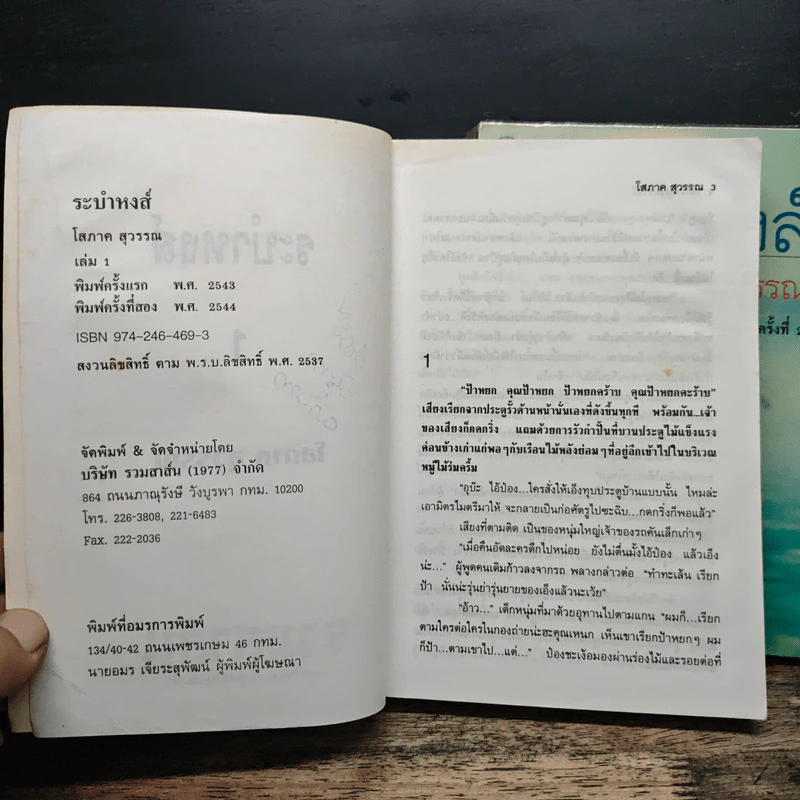 ระบำหงส์
โสภาค สุวรรณ
เล่ม 1
พิมพ์ครั้งแรก พ.ศ. 2543
พิมพ์ครั้งที่สอง พ.ศ. 2544
ISBN 974-246-469-3
สงวนลิขสิทธิ์ ตาม พ.ร.บ.ลิขสิทธิ์ พ.ศ. 2537
จัดพิมพ์ & จัดจำหน่ายโดย
บริษัท รวมสาส์น (1977) จำกัด
864 ถนนภาณุรังษี วังบูรพา กทม. 10200
โทร. 226-3808, 221-6483
Fax. 222-2036
พิมพ์ที่อมรการพิมพ์
134/40-42 ถนนเพชรเกษม 46 กทม.
นายอมร เจียระสุพัฒน์ ผู้พิมพ์ผู้โฆษณา
โสภาค สุวรรณ 3
1
"ป้าหยก คุณป้าหยก ป้าหยกคร้าบ คุณป้าหยกคะร้าบ"
เสียงเรียกจากประตูรั้วด้านหน้านั่นเองที่ดังขึ้นทุกที พร้อมกัน...เจ้า
ของเสียงก็กดกริ่ง แถมด้วยการรัวกำปั้นที่บานประตูไม้แข็งแรง
ค่อนข้างเก่าแก่พอๆกับเรือนไม้หลังย่อมๆที่อยู่ลึกเข้าไปในบริเวณ
หมู่ไม้ร่มครึ้ม
"อุบ๊ะ ไอ้ป๋อง...ใครสั่งให้เอ็งทุบประตูบ้านแบบนั้น ไหมล่ะ
เอามิตรไมตรีมาให้ จะกลายเป็นก่อศัตรูไปซะฉิบ...กดกริ่งก็พอแล้ว"
เสียงที่ตามติด เป็นของหนุ่มใหญ่เจ้าของรถคันเล็กเก่าๆ
"เมื่อคืนอัดละครดึกไปหน่อย ยังไม่ตื่นมั้งไอ้ป๋อง แล้วเอ็ง
น่ะ..." ผู้พูดคนเดิมก้าวลงจากรถ พลางกล่าวต่อ "ทำทะเล้น เรียก
ป้า นั่นน่ะรุ่นย่ารุ่นยายของเอ็งแล้วนะเว้ย"
"อ้าว..." เด็กหนุ่มที่มาด้วยอุทานไปตามแกน "ผมก็...เรียก
ตามใครต่อใครในกองถ่ายน่ะฮะคุณเหนก เห็นเขาเรียกป้าหยกๆ ผม
ก็ป้า...ตามเขาไป...แต่..." ป๋องชะเง้อมองผ่านร่องไม้และรอยต่อที่
ครั้งที่ 2